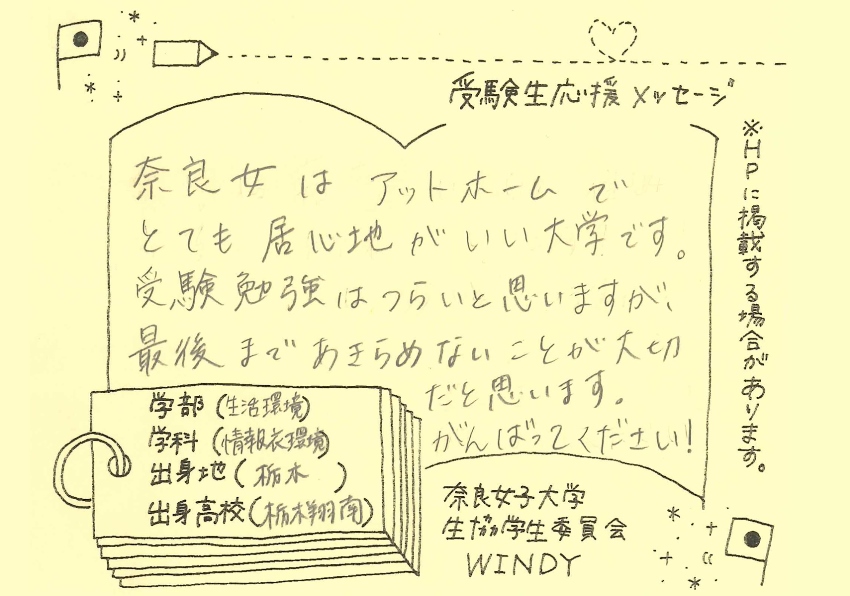 受験生応援メッセージ
※HPに掲載する場合があります。
奈良女は アットホームで
とても居心地がいい大学です。
受験勉強はつらいと思いますが、
最後まであきらめないことが大切
だと思います。
がんばってください!
学部(生活環境)
学科(情報衣環境)
出身地(栃木)
出身高校(栃木翔南)
奈良女子大学
生協学生委員会
WINDY